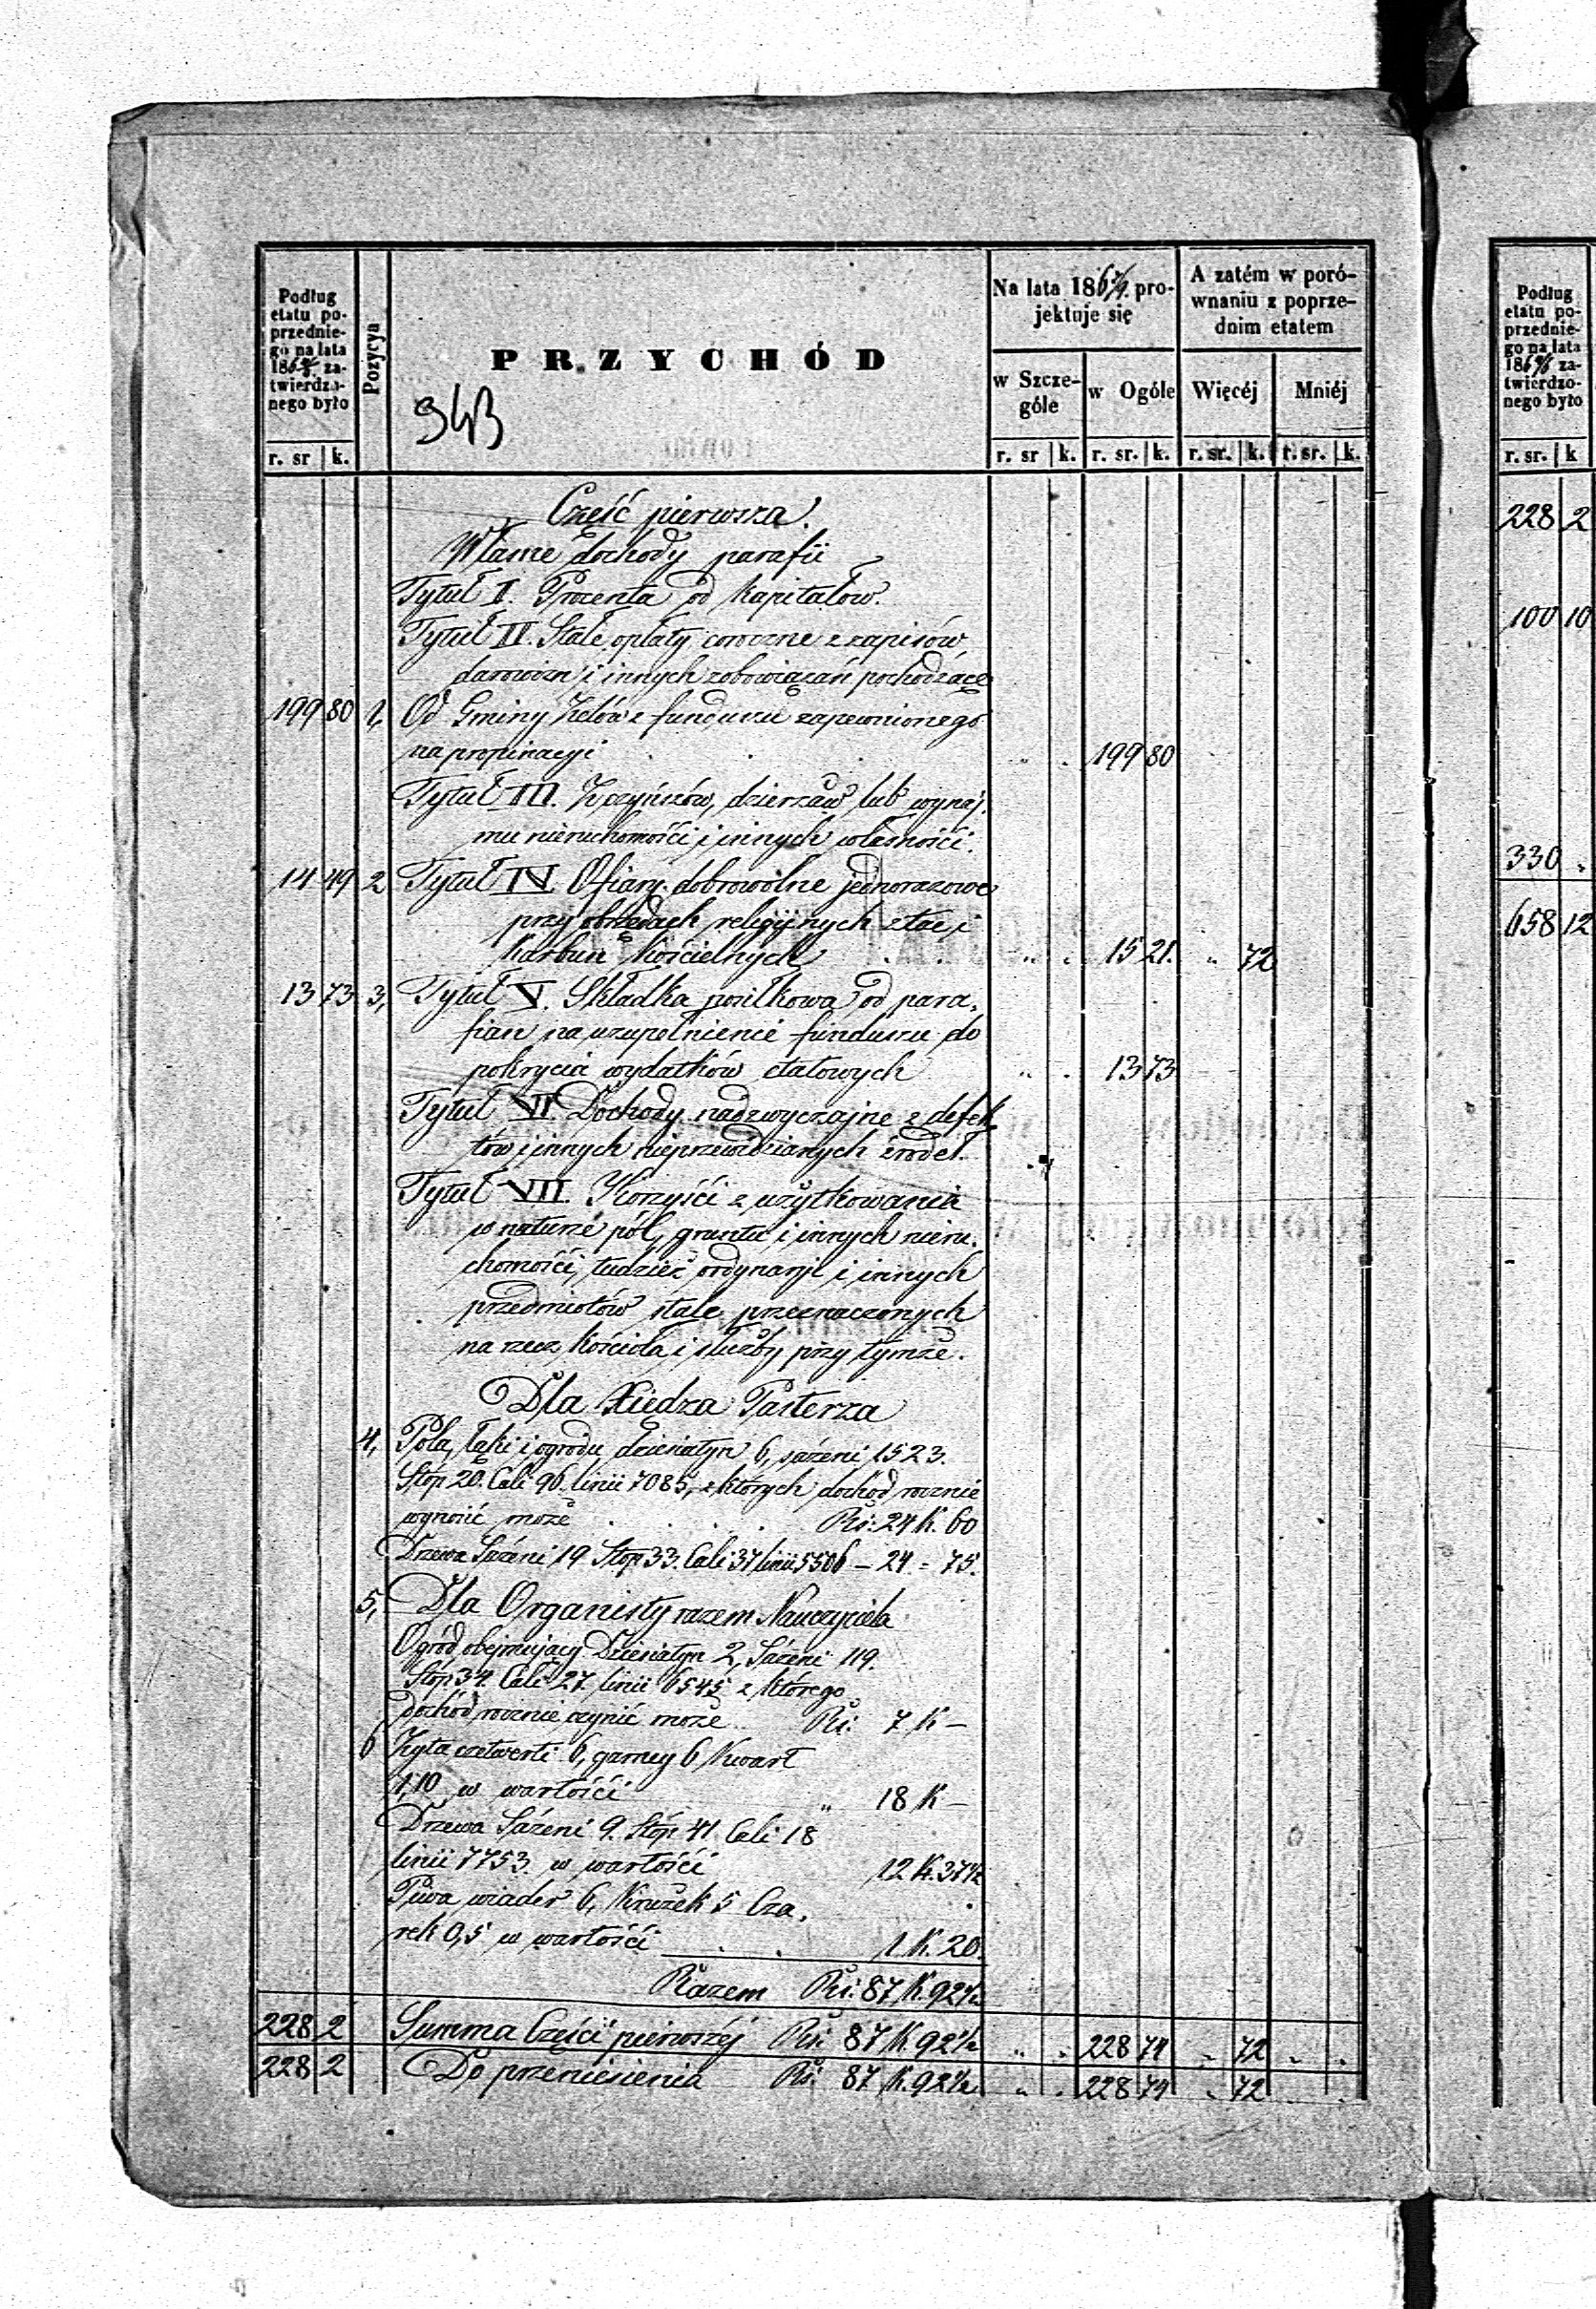 Podług etatu poprzedniego na lata 186 zatwierdzonego było
Pozycya
PRZYCHÓD
Na lata 186 projektuje się
A zatém w porównaniu z poprzednim etatem
w Szczególe
w Ogóle
Więcéj
Mniéj
r. sr k.
r. sr k. r. sr. k. r. sr. k. r. sr. k.
Część pierwsza.
Własne dochody parafii
Tytuł I. Procenta od kapitałów.
Tytuł II. Stałe opłaty coroczne z zapisów,
darowizn i innych zobowiązań pochodzące
199 80 1, Od Gminy Zelów z funduszu zapewnionego
na propinacyi " . 199 80
Tytuł III. Z czynszów, dzierżaw lub wynaj-
mu nieruchomości i innych własności.
14 49 2 Tytuł IV. Ofiary dobrowolne jednorazowe
przy obrzędach religijnych z tac i
karbun kościelnych " . 15 21. " 72
13 73 3, Tytuł V. Składka posiłkowa od para-
fian na uzupełnienie funduszu do
pokrycia wydatków etatowych " . 13 73
Tytuł VI. Dochody nadzwyczajne z defek
tów i innych nieprzewidzianych źródeł.
Tytuł VII. Korzyści z użytkowania
w naturze pól, gruntu i innych nieru-
chomości, tudzież ordynaryi i innych
przedmiotów stale przeznaczonych
na rzecz kościoła i służby przy tymże.
Dla Xiędza Pasterza
4, Pola, łąki i ogrodu, dziesiatyn 6, sążeni 1523.
Stóp 20. Cali 96. linii 7085, z których dochód rocznie
wynosić może Rs: 24 K. 60
Drzewa Sążeni 19 Stóp 33. Cali 37 linii 5506 — 24 = 75.
5, Dla Organisty razem Nauczyciela
Ogród obejmujący Dziesiatyn 2, Sążeni 119.
Stóp 34. Cali 27. linii 6545 z którego
dochód rocznie czynić może Rs: 7 K —
6 Żyta czetwerti 6, garncy 6 Kwart
1,10 w wartości " 18 K —
Drzewa Sążeni 9. Stóp 41 Cali 18
linii 7753. w wartości 12 K. 37½
Piwa wiader 6, Kruzek 5 Cza-
rek 0,5 w wartości 1 K. 20.
Razem Rs: 87 K. 92½
228 2 Summa Części pierwszéj Rs: 87 K. 92½ " . 228 74 " 72 " .
228 2 Do przeniesienia Rs: 87 K. 92½ " . 228 74 " 72 .
Podług etatu poprzedniego na lata 186 zatwierdzonego było
r. sr. k
228 2
100 10
330 "
658 12